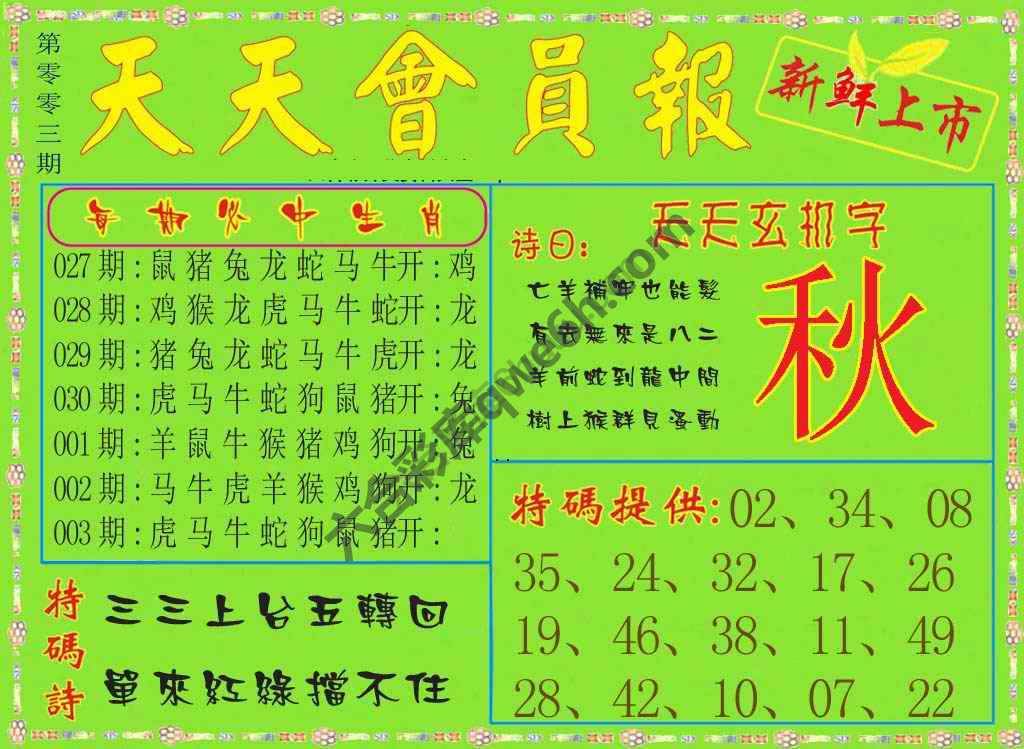 第零零三期
天天會員報
新鮮上市
每期必中生肖
027期:鼠猪兔龙蛇马牛开:鸡
028期:鸡猴龙虎马牛蛇开:龙
029期:猪兔龙蛇马牛虎开:龙
030期:虎马牛蛇狗鼠猪开:兔
001期:羊鼠牛猴猪鸡狗开:兔
002期:马牛虎羊猴鸡狗开:龙
003期:虎马牛蛇狗鼠猪开:
天天玄机字
诗曰:
亡羊補牢也能髮
有去無來是八二
羊前蛇到龍中間
樹上猴群見蚤動
秋
特碼提供:02、34、08
35、24、32、17、26
19、46、38、11、49
28、42、10、07、22
特碼詩
三三上台五轉回
單來紅綠擋不住
六合彩库qwe6hi.com